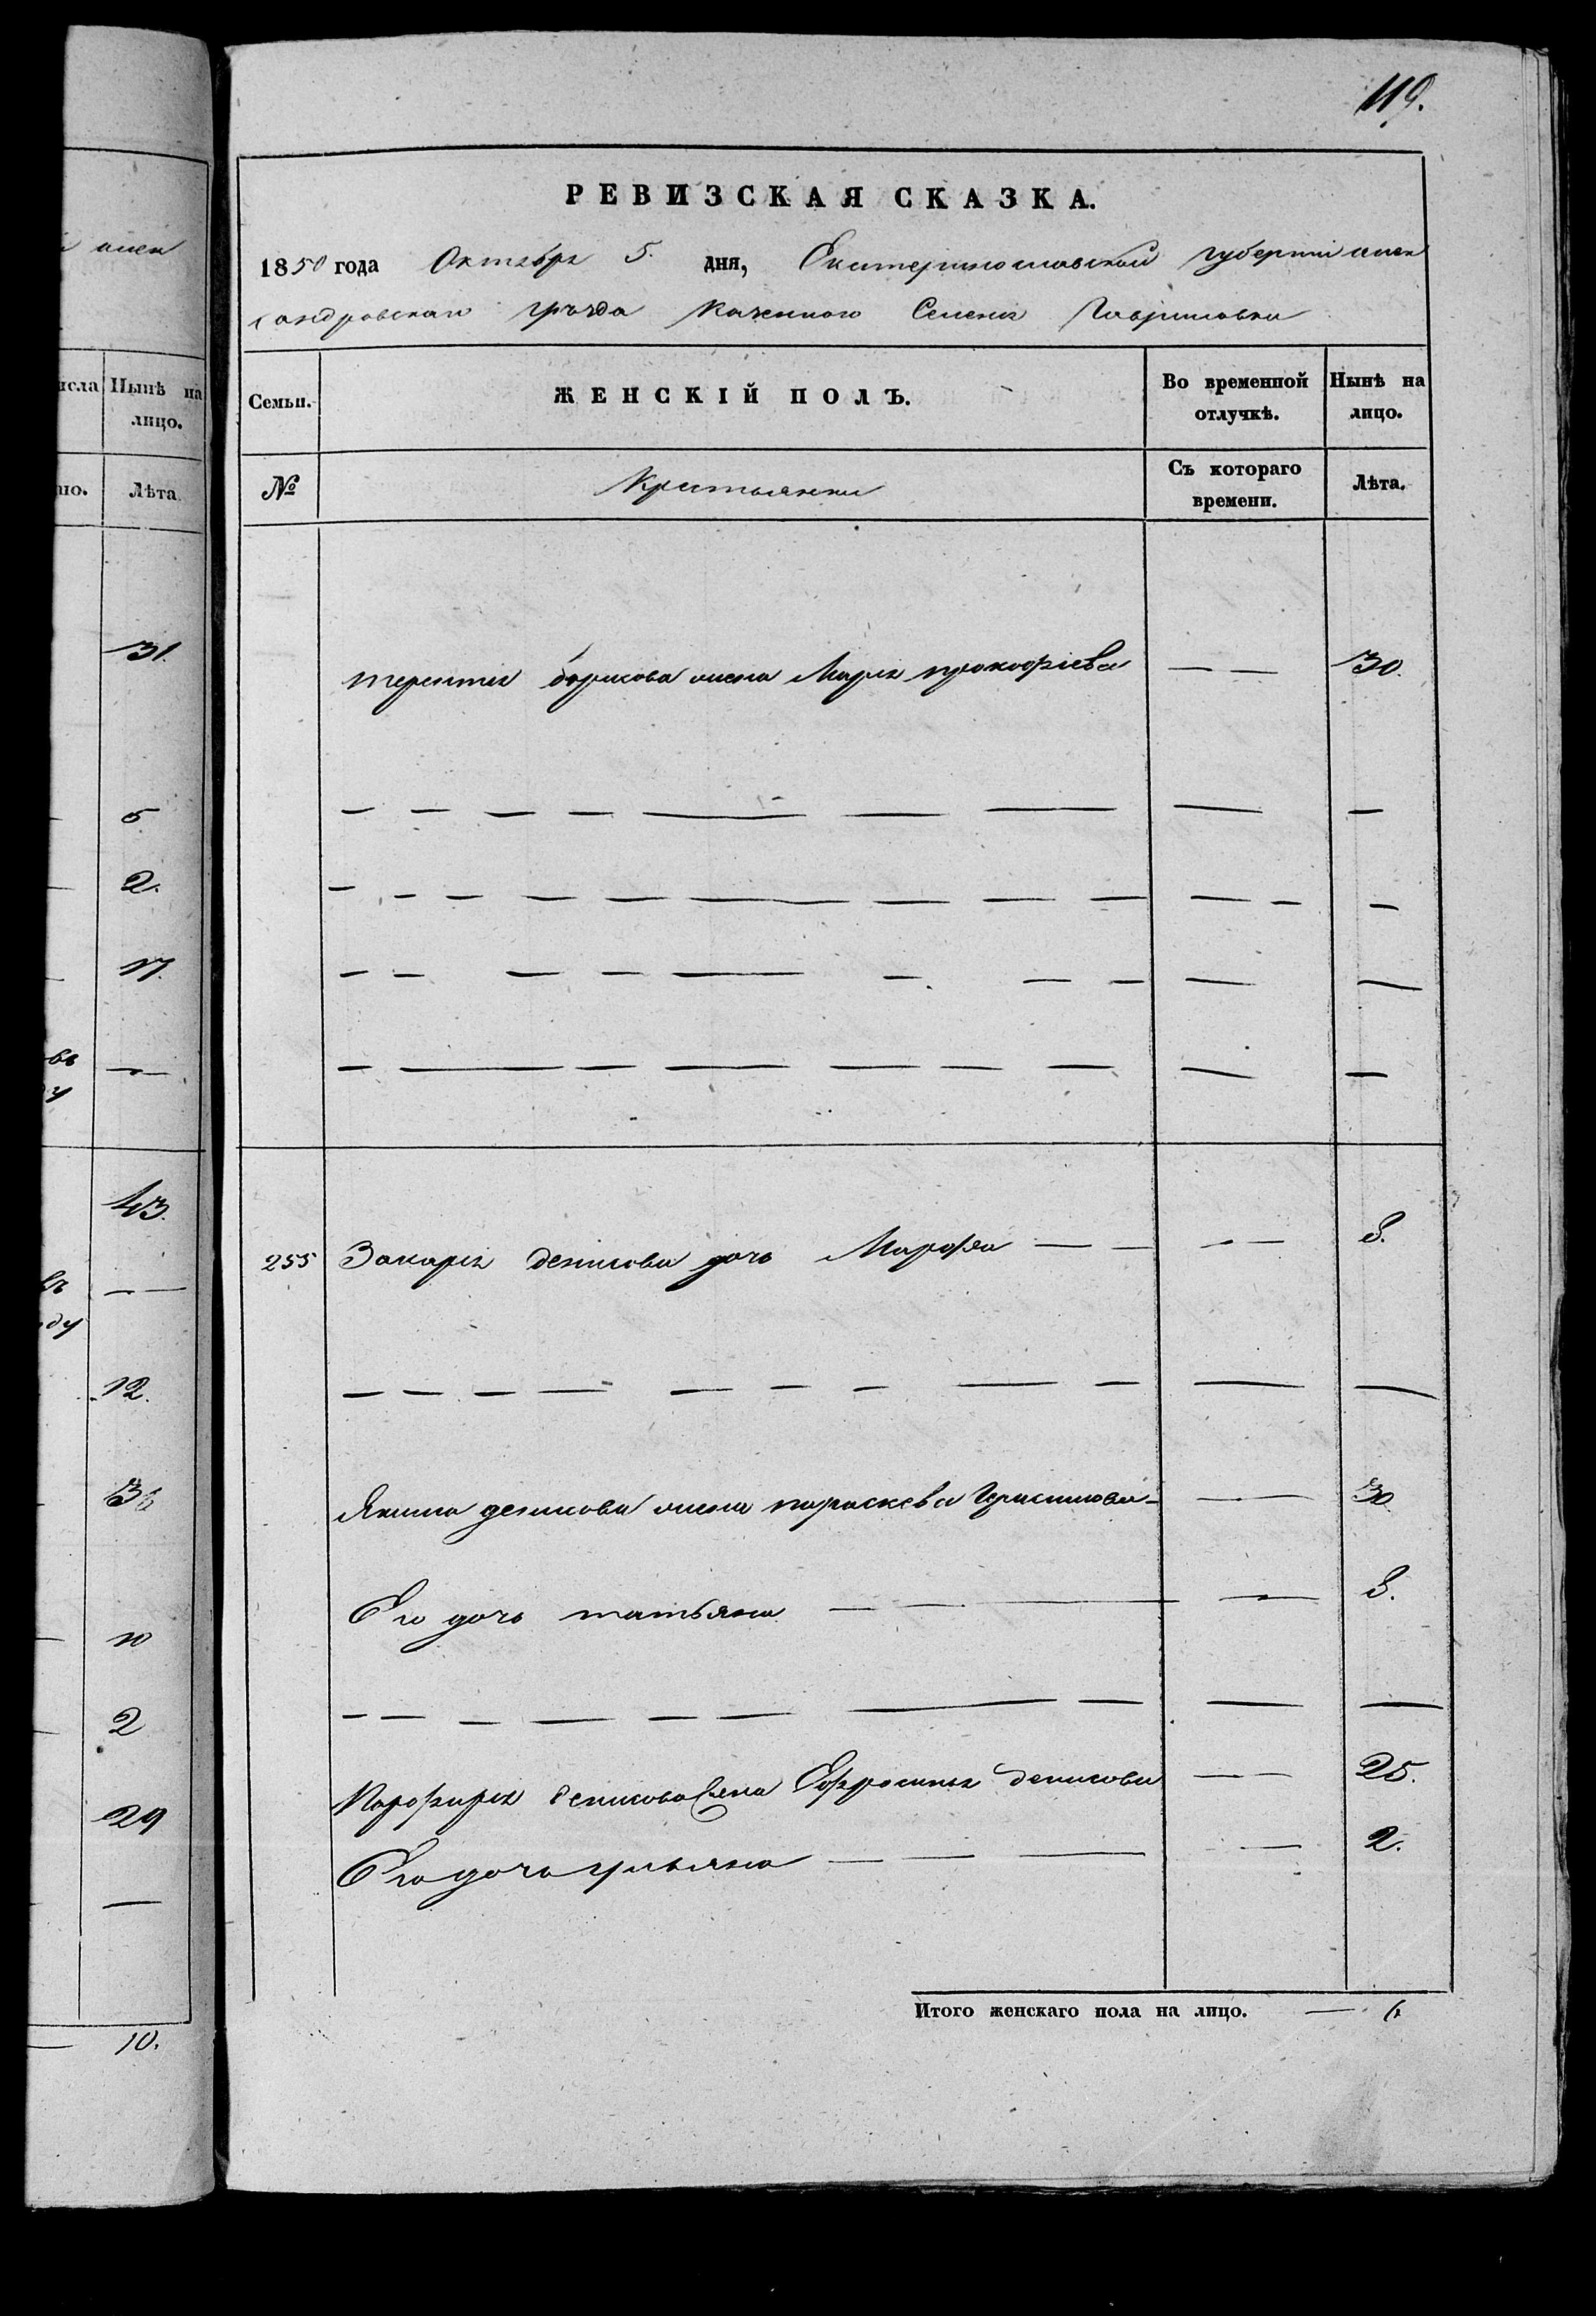 119.
РЕВИЗСКАЯ СКАЗКА.
1850 года Октября 5. дня, Екатеринославской губерніи алек
сандровскаго уѣзда Казенного Селенія Гавриловки
Семьи.
ЖЕНСКІЙ ПОЛЪ.
Во временной отлучкѣ.
Нынѣ на лицо.
№
Крестьянки
Съ котораго времени.
Лѣта.
терентія борисова жена Марія прокофіева — — 30.
255 Захарія денисова дочь Марфа — — — — 8.
Якима денисова жена параскева Герасимова — — 30.
Его дочь татьяна — — — — 8.
Порфирія денисова жена Ефросинья денисова — — 25.
Его дочь ульяна — — — — 2.
Итого женскаго пола на лицо. — 6
алек
исла
Нынѣ на лицо.
Лѣта.
31.
5
2.
17.
—
въ
43.
—
ду
12.
36
10
2
29
—
10.